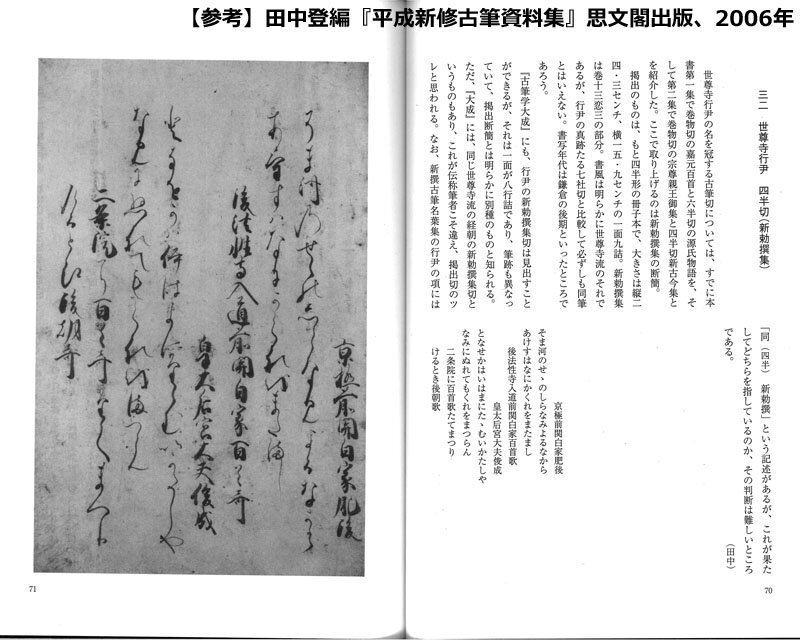 【参考】田中登編『平成新修古筆資料集』思文閣出版、2006年
三二　世尊寺行尹　四半切（新勅撰集）
世尊寺行尹の名を冠する古筆切については、すでに本
書第一集で巻物切の嘉元百首と六半切の源氏物語を、そ
して第二集で巻物切の宗尊親王御集と四半切新古今集と
を紹介した。ここで取り上げるのは新勅撰集の断簡。
掲出のものは、もと四半形の冊子本で、大きさは縦二
四・三センチ、横一五・九センチの一面九詰。新勅撰集
は巻十三恋三の部分。書風は明らかに世尊寺流のそれで
あるが、行尹の真跡たる七社切と比較して必ずしも同筆
とはいえない。書写年代は鎌倉の後期といったところで
あろう。
『古筆学大成』にも、行尹の新勅撰集切は見出すこと
ができるが、それは一面が八行詰であり、筆跡も異なっ
ていて、掲出断簡とは明らかに別種のものと知られる。
ただ、『大成』には、同じ世尊寺流の経朝の新勅撰集切と
いうものもあり、これが伝称筆者こそ違え、掲出切のツ
レと思われる。なお、新撰古筆名葉集の行尹の項には
「同（四半）　新勅撰」という記述があるが、これが果た
してどちらを指しているのか、その判断は難しいところ
である。
（田中）
京極前関白家肥後
そま河のせゝのしらなみよるなから
あけすはなにかくれをまたまし
後法性寺入道前関白家百首歌
皇太后宮大夫俊成
となせかはいはまにたゝむいかたしや
なみにぬれてもくれをまつらん
二条院に百首歌たてまつり
けるとき後朝歌
70
京極前関白家肥後
そま河のせゝのしらなみよるなから
あけすはなにかくれをまたまし
後法性寺入道前関白家百首哥
皇太后宮大夫俊成
となせかはいはまにたゝむいかたしや
なみにぬれてもくれをまつらん
二条院に百首哥たてまつり
けるとき後朝哥
71